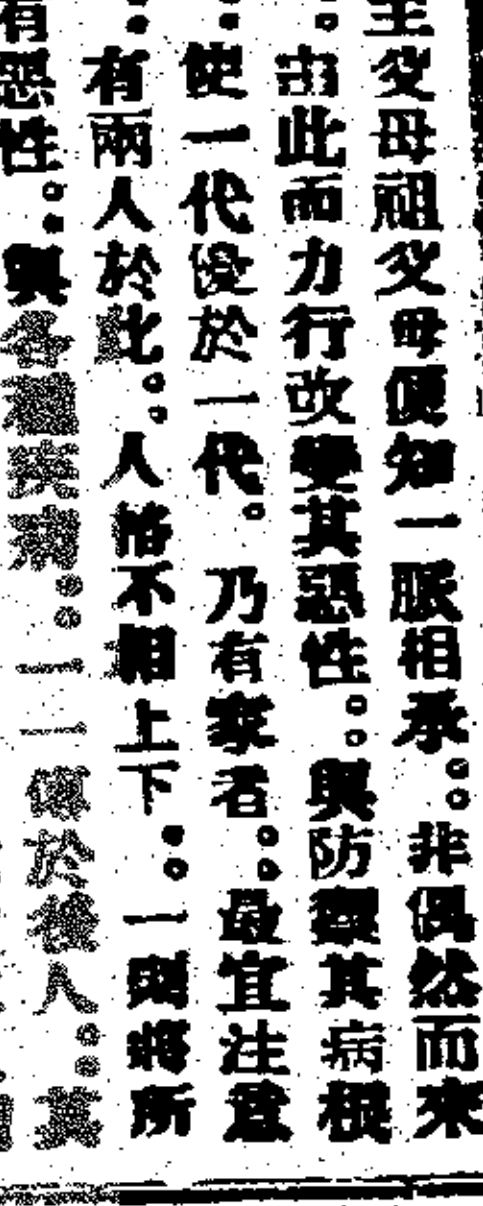 父母祖父母便知一脈相承。。非偶然而來
。由此而力行改變其惡性。。與防其病根
使一代優於一代。乃有家者。。最宜注意
有兩人於此。。人格不相上下。。一則將所
有惡性。。與各種疾病。。一一傳於後人。。其